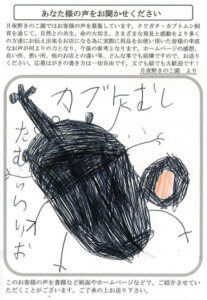 あなた様の声をお聞かせください
月夜野きのこ園ではお客様の声を募集しています。クワガタ・カブトムシ飼
育を通じて、自然との共生、命の大切さ、さまざまな発見と感動をより多く
の方達にお伝え出来るお店になる為に実際に用品をお使い頂いた皆様の率直
なお声が何よりの力となり、今後の参考となります。ホームページの感想、
良い所、悪い所、他のお店との違い等、どんな事でも結構ですので、お送り
下さい。応募はがきの書き方は一切自由です。文でも絵でも大歓迎です!
月夜野きのこ園 より
カブトむし
たむらりお
このお客様の声を書籍など紙面やホームページなどで、ご紹介させてい
ただくことがございます。ご了承の上お送り下さい。